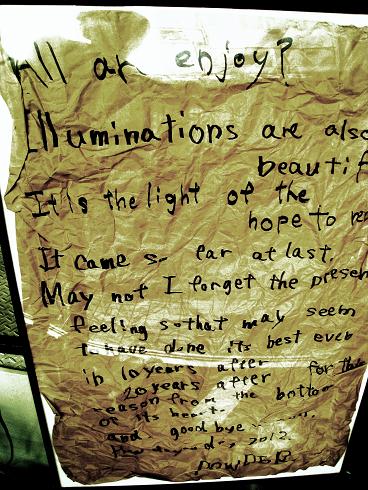 All are enjoy?
Illuminations are also
beautif
It's the light of the
hope to re
It came so far at last.
May not I forget the presen
feeling so that may seem
to have done its best ever
in 10 years after
20 years after for the
reason from the bottom
of its heart.
and good bye
2012.